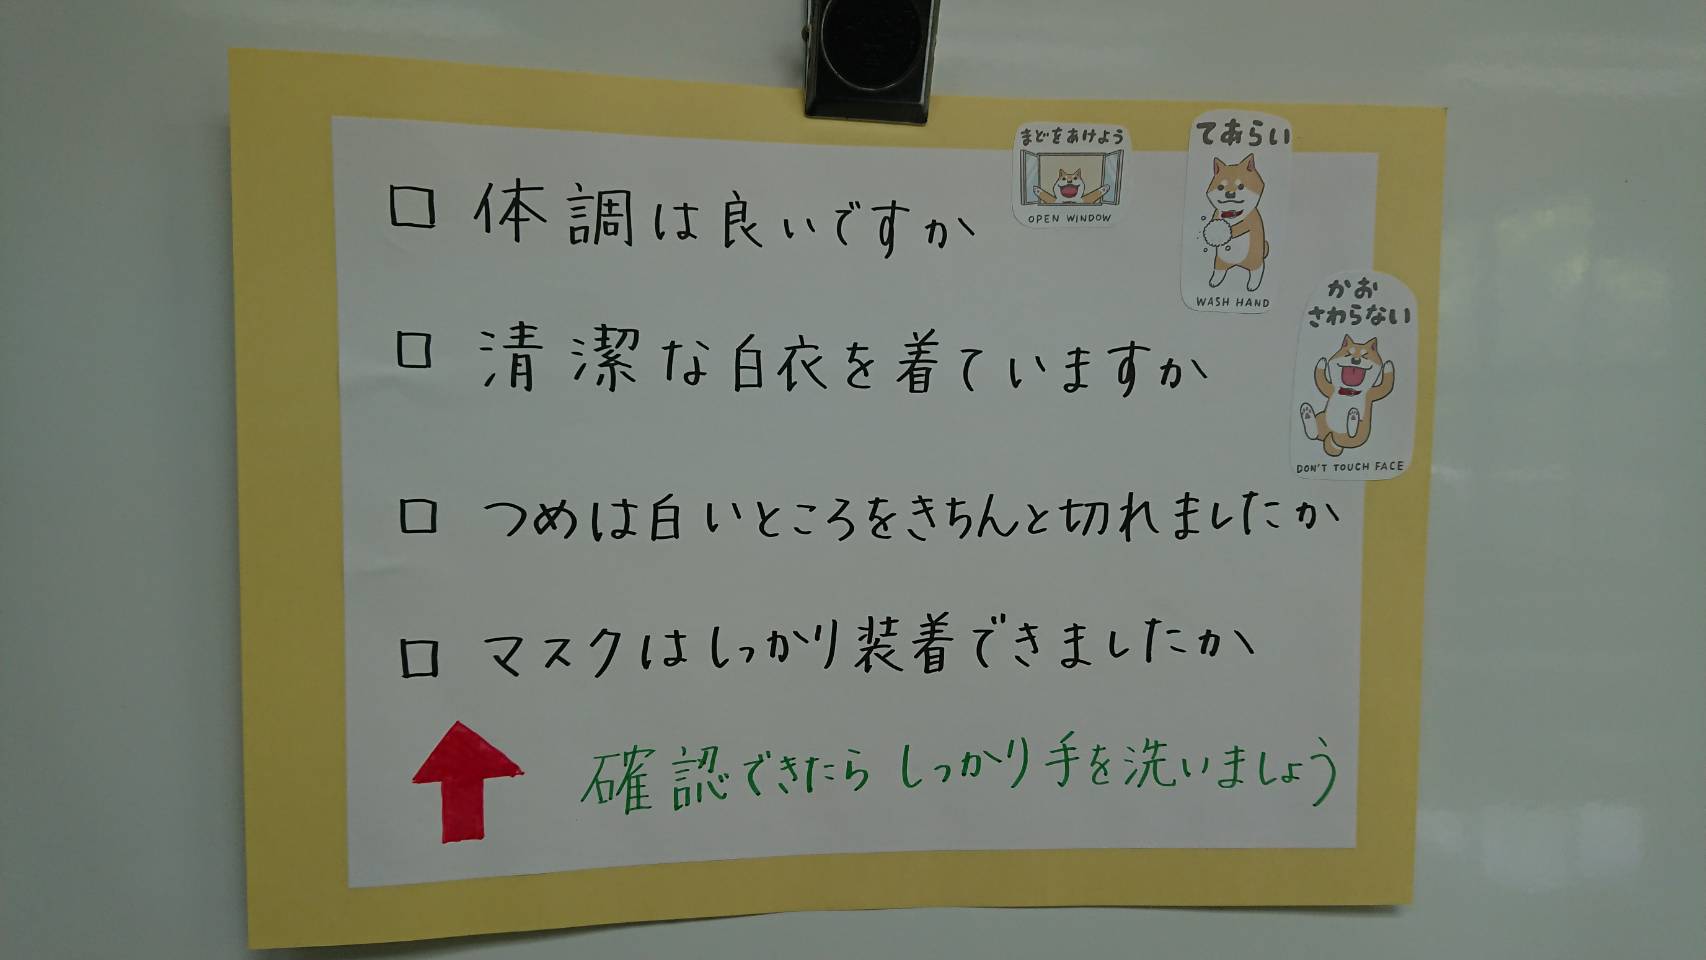 □ 体調は良いですか
□ 清潔な白衣を着ていますか
□ つめは白いところをきちんと切れましたか
□ マスクはしっかり装着できましたか
確認できたら しっかり手を洗いましょう
まどをあけよう
OPEN WINDOW
てあらい
WASH HAND
かお
さわらない
DON'T TOUCH FACE